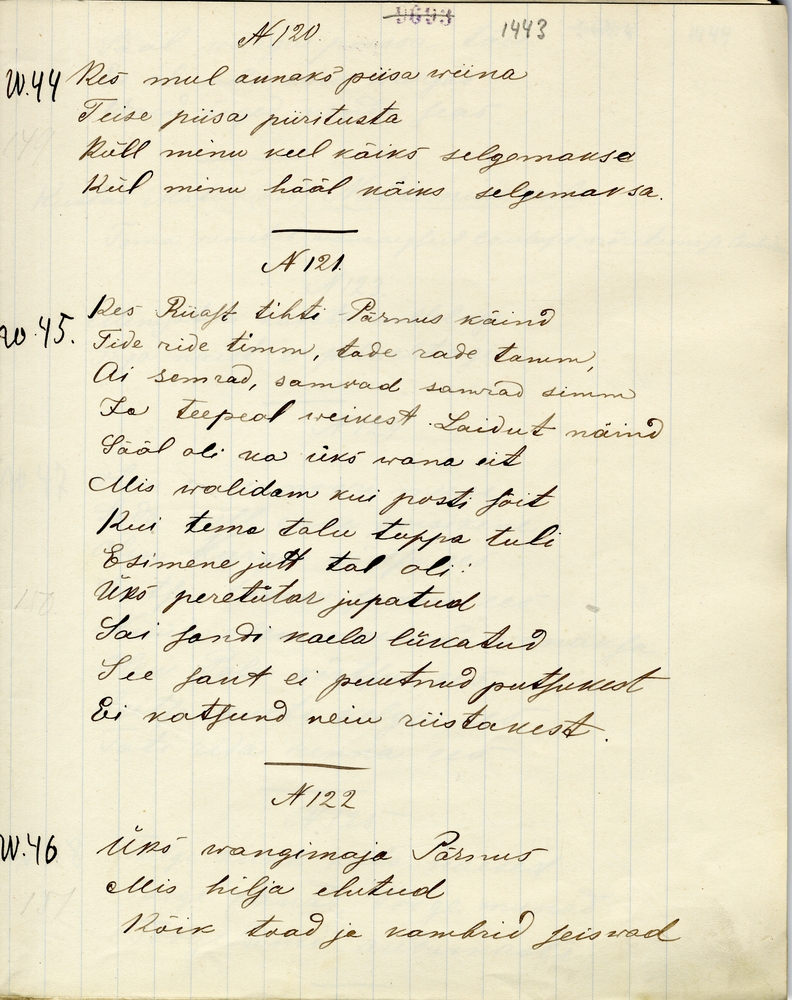 9693 1443
N 120.
W. 44 Kes mul annaks piisa wiina
Teise piisa piiritusta
Küll minu keel käiks selgemaksa
Kül minu hääl käiks selgemaksa.
N 121.
W. 45. Kes Riiast tihti Pärnus käind
Tide ride timm, tade rade tamm,
Ai semrad, samrad samrad simm
Ja teepeal weikest Laidut näind
Sääl oli ka üks wana eit
Mis walidam kui posti sõit
Kui tema talu tuppa tuli
Esimene jutt tal oli:
Üks peretütar jupatud
Sai sandi kaela lükatud
See sant ei puutnud putsukest
Ei katsund neiu riistakest.
N 122
W. 46 Üks wangimaja Pärnus
Mis hilja ehitud
Kõik toad ja kambrid seiswad